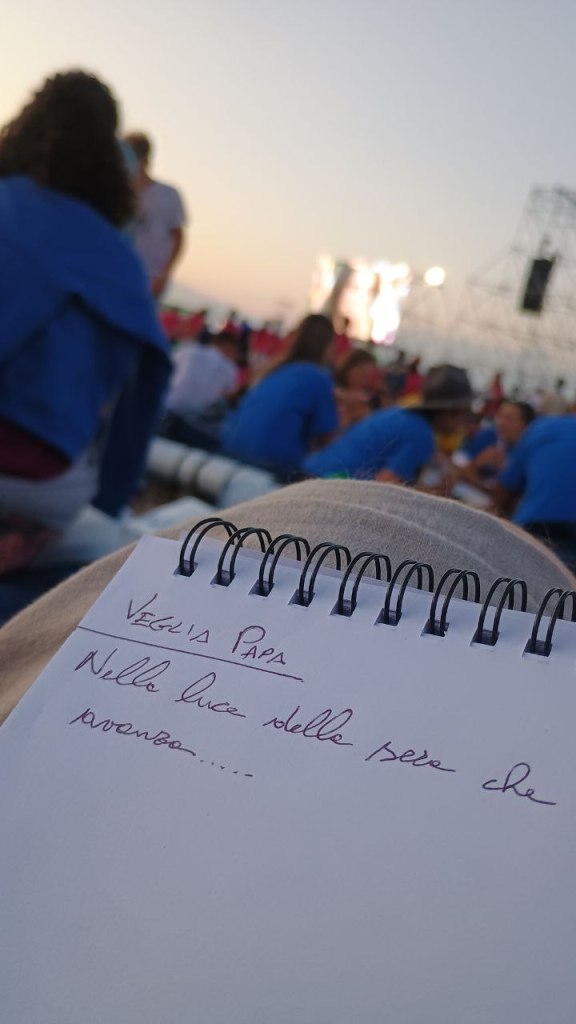 VEGLIA PAPA
Nella luce della sera che
avanza.....